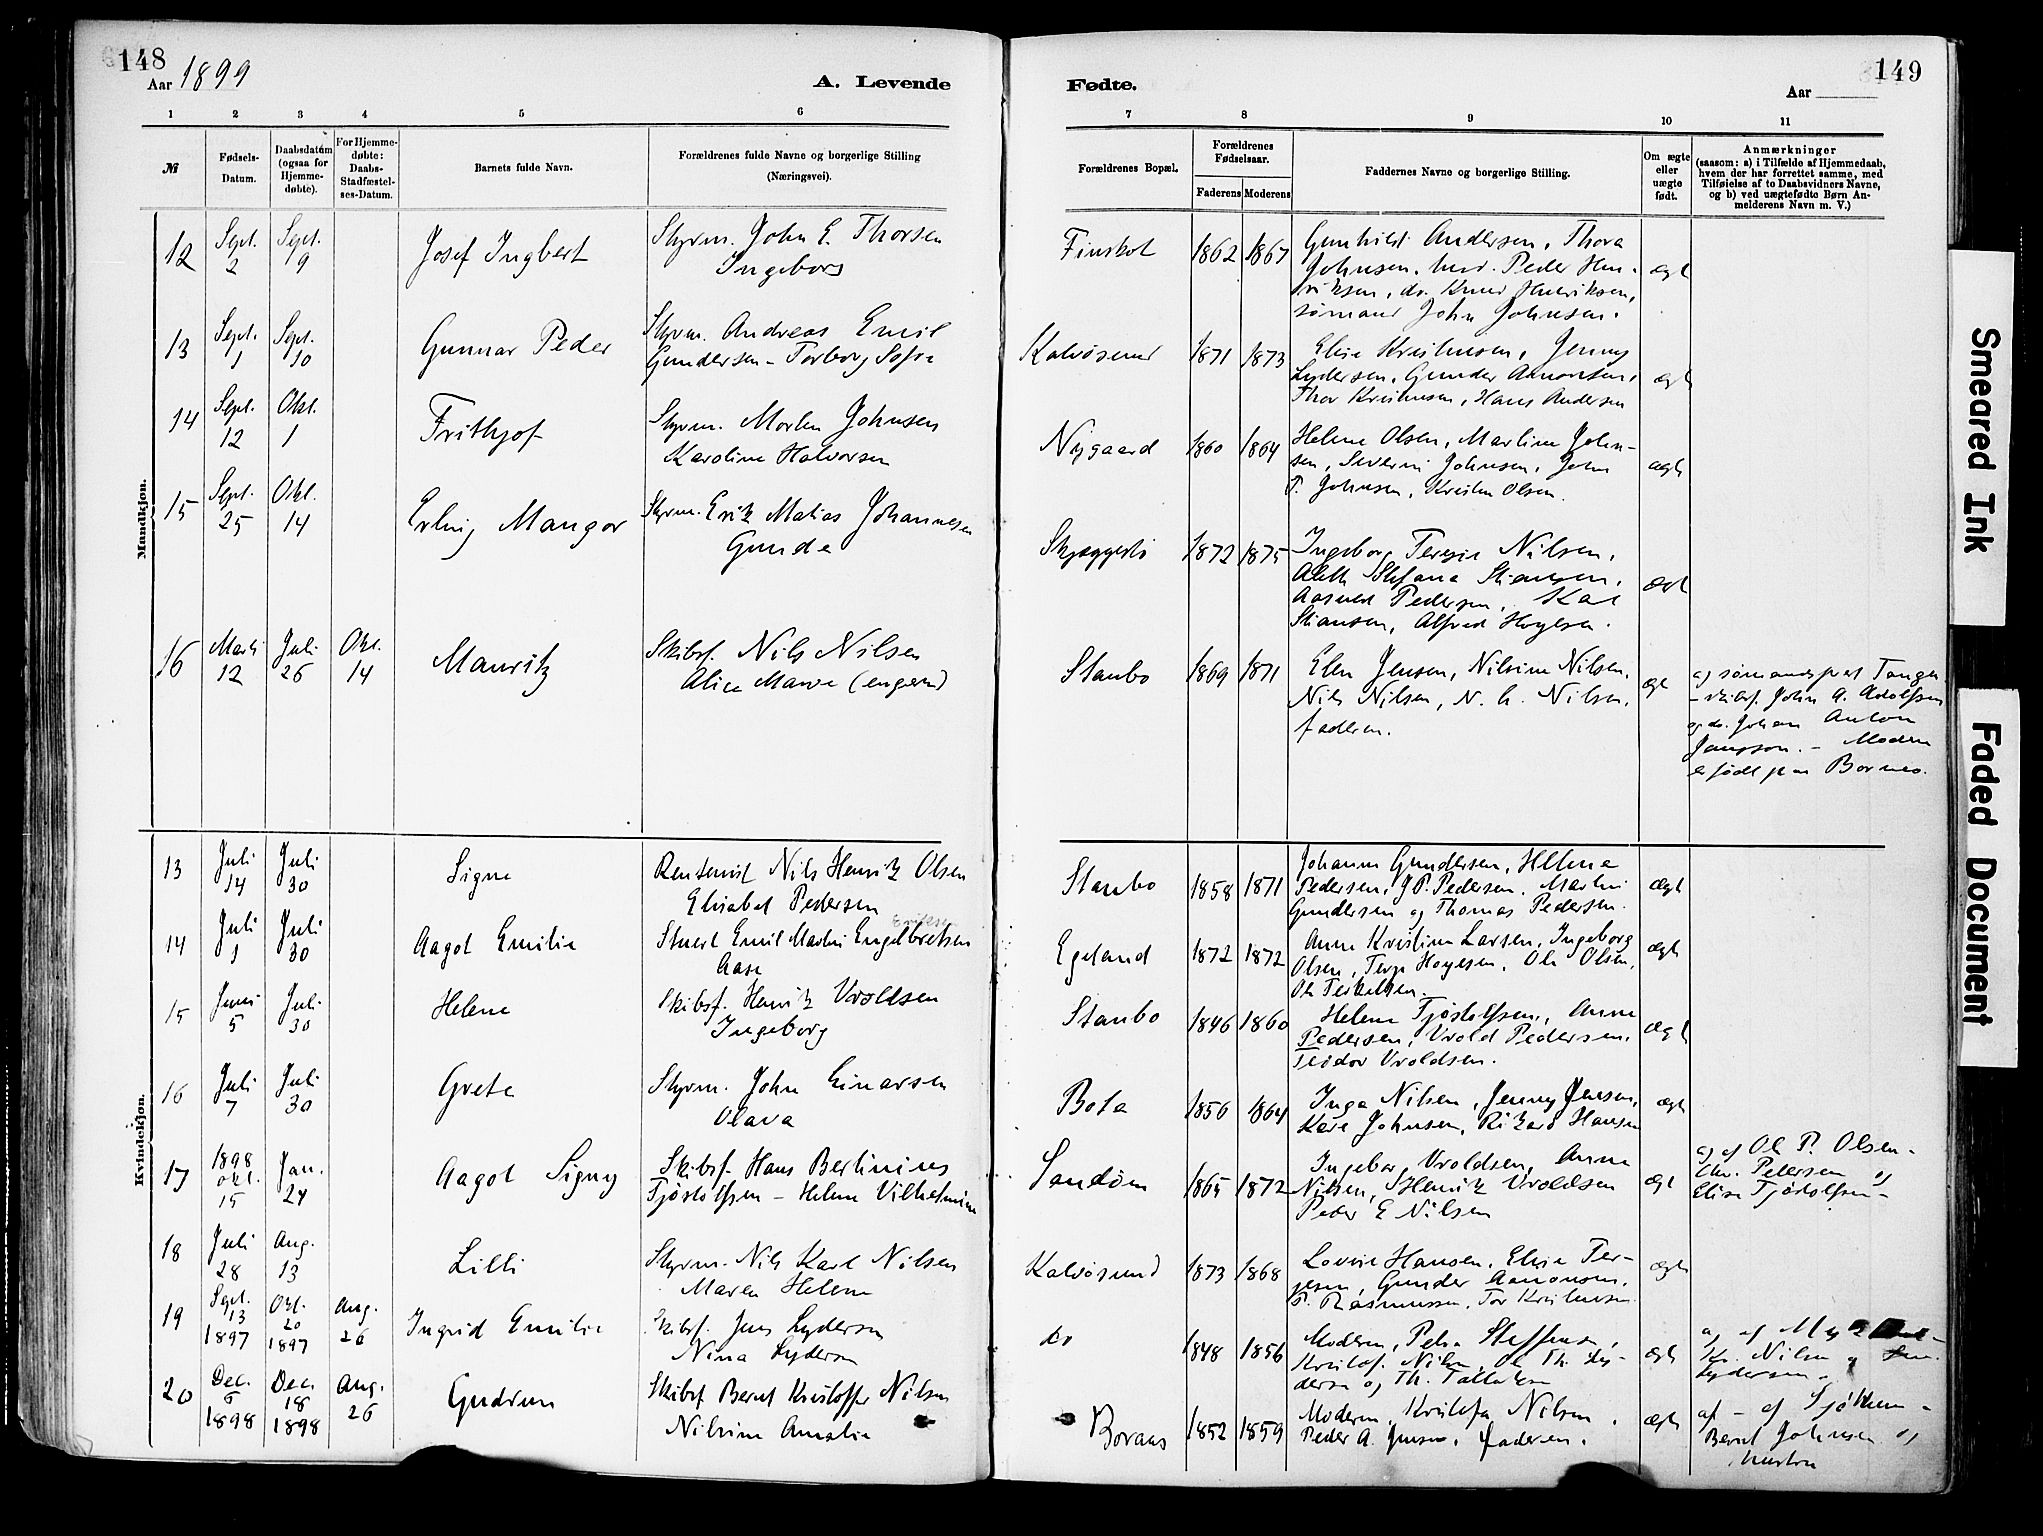 148
Aar 1899
A. Levende
1 2 3 4 5 6
№
Fødsels-
Datum.
Daabsdatum
(ogsaa for
Hjemme-
døbte).
For Hjemme-
døbte:
Daabs-
Stadfæstel-
ses-Datum.
Barnets fulde Navn.
Forældrenes fulde Navne og borgerlige Stilling
(Næringsvei).
Mandkjøn.
12 Sept. 2 Sept. 9 Josef Ingbert Styrm. John E. Thorsen
Ingeborg
13 Sept. 1 Sept. 10 Gunnar Peder Styrm. Andreas Emil
Gundersen - Torborg Sofie
14 Sept. 12 Okt. 1 Frithjof Styrm. Morten Johnsen
Karoline Halvorsen
15 Sept. 25 Okt. 14 Erling Mangor Styrm. Erik Matias Johannesen
Gunda
16 Marts 12 Juli 26 Okt. 14 Mauritz Skibsf. Nils Nilsen
Alice Marie
Kvindekjøn.
13 Juli 14 Juli 30 Signe Rentenist Nils Henrik Olsen
Elisabet Pedersen
14 Juli 1 Juli 30 Aagot Emilie Stuert Emil Martin Engelbretsen
Aase
15 Juni 5 Juli 30 Helene Skibsf. Henrik Vroldsen
Ingeborg
16 Juli 7 Juli 30 Grete Styrm. John Einarsen
Olava
17 1898 Okt. 15 Jan. 24 Aagot Signy Skibsf. Hans Bertinius
Tjøstolfsen - Helene Vilhelmine
18 Juli 28 Aug. 13 Lilli Styrm. Nils Karl Nilsen
Maren Helene
19 Sept. 13 1897 Okt. 20 1897 Aug. 26 Ingrid Emilie Skibsf. Jens Lydersen
Nina Lydersen
20 Dec. 6 1898 Dec. 18 1898 Aug. 26 Gudrun Skibsf Bernt Kristoffer Nilsen
Nilsine Amalie
149
Fødte.
Aar
7 8 9 10 11
Forældrenes Bopæl.
Forældrenes
Fødselsaar.
Faderens Moderens
Faddernes Navne og borgerlige Stilling.
Om ægte
eller
uægte
født.
Anmærkninger
(saasom: a) i Tilfælde af Hjemmedaab,
hvem der har forrettet samme, med
Tilføielse af to Daabsvidners Navne,
og b) ved uægtefødte Børn An-
melderens Navn m. V.)
Finskot 1862 1867 Gunhild Andersen, Thora
Johnsen, Peder Hen-
riksen, do. Knud Henriksen,
sømand John Johnsen. ægte
Kalvøsund 1871 1873 Elise Kristensen, Jenny
Lydersen, Gunder Aanonsen,
Thor Kristensen, Hans Andersen ægte
Nygaard 1860 1864 Helene Olsen, Martine John-
sen, Severin Johnsen, John
P. Johnsen, Kristen Olsen. ægte
1872 1875 Ingeborg Terese Nilsen,
Stefana Stiansen,
Pedersen, Karl
Stiansen, Alfred Hoyesen. ægte
Staubo 1869 1871 Elen Jensen, Nilsine Nilsen,
Nils Nilsen, N. Nilsen,
faderen. ægte
a) sømandsprest Tangen
- skibsf. John A. Adolfsen
og do. Johan Anton
- Moderen
er født paa Borneo.
Staubo 1858 1871 Johanne Gundersen, Helene
Pedersen, J.P. Pedersen, Martin
Gundersen og Thomas Pedersen. ægte
Egeland 1872 1872 Anne Kristine Larsen, Ingeborg
Olsen, Terje Hoyesen, Ole Olsen,
Ole Terkelsen. ægte
Staubo 1846 1860 Helene Tjøstolfsen, Anne
Pedersen, Vrold Pedersen,
Teodor Vroldsen. ægte
Bota 1856 1864 Inga Nilsen, Jenny Jensen,
Kare Johnsen, Rikard Hansen ægte
Sandøen 1865 1872 Ingebor Vroldsen, Anne
Nilsen, Henrik Vroldsen
Peder E Nilsen ægte
a) af Ole P. Olsen -
Chr. Pedersen og
Elise Tjøstolfsen -
Kalvøsund 1873 1868 Lovise Hansen, Elise Ter-
jesen, Gunder Aanonsen,
P. Rasmussen, Tor Kristensen ægte
do 1848 1856 Moderen, Petra Steffensen,
Kristof. Nilsen, Ole Th. Ly-
dersen og Th. Tallaksen ægte
a) af
Kr. Nilsen og
Lydersen -
Boraas 1852 1859 Moderen, Kristofa Nilsen,
Peder A. Jensen, Faderen. ægte
af
Bernt Johnsen og
hustru
Smeared Ink
Faded Document